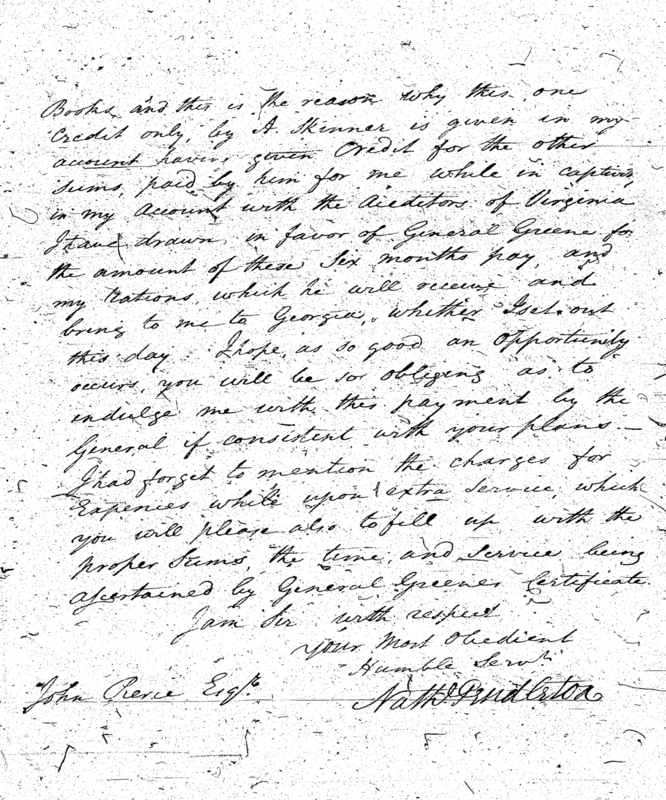 Books, and this is the reason why this one
Credit only, by A. Skinner is given in my
account having given Credit for the other
sums, paid by him for me while in captivity,
in my Account with the Auditors of Virginia
I have drawn in favor of General Greene for
the amount of these Six months pay, and
my rations, which he will receive and
bring to me to Georgia, whither I set out
this day. I hope, as so good an opportunity
occurs, you will be so obliging as to
indulge me with this payment by the
General if consistent with your plans.—
I had forgot to mention the charges for
Expences while upon extra Service, which
you will please also to fill up with the
proper Sums, the time, and Service being
ascertained by General Greenes Certificate.
I am Sir with respect
Your Most Obedient
Humble Servt.
John Pierce Esqr.
Nathl Pendleton